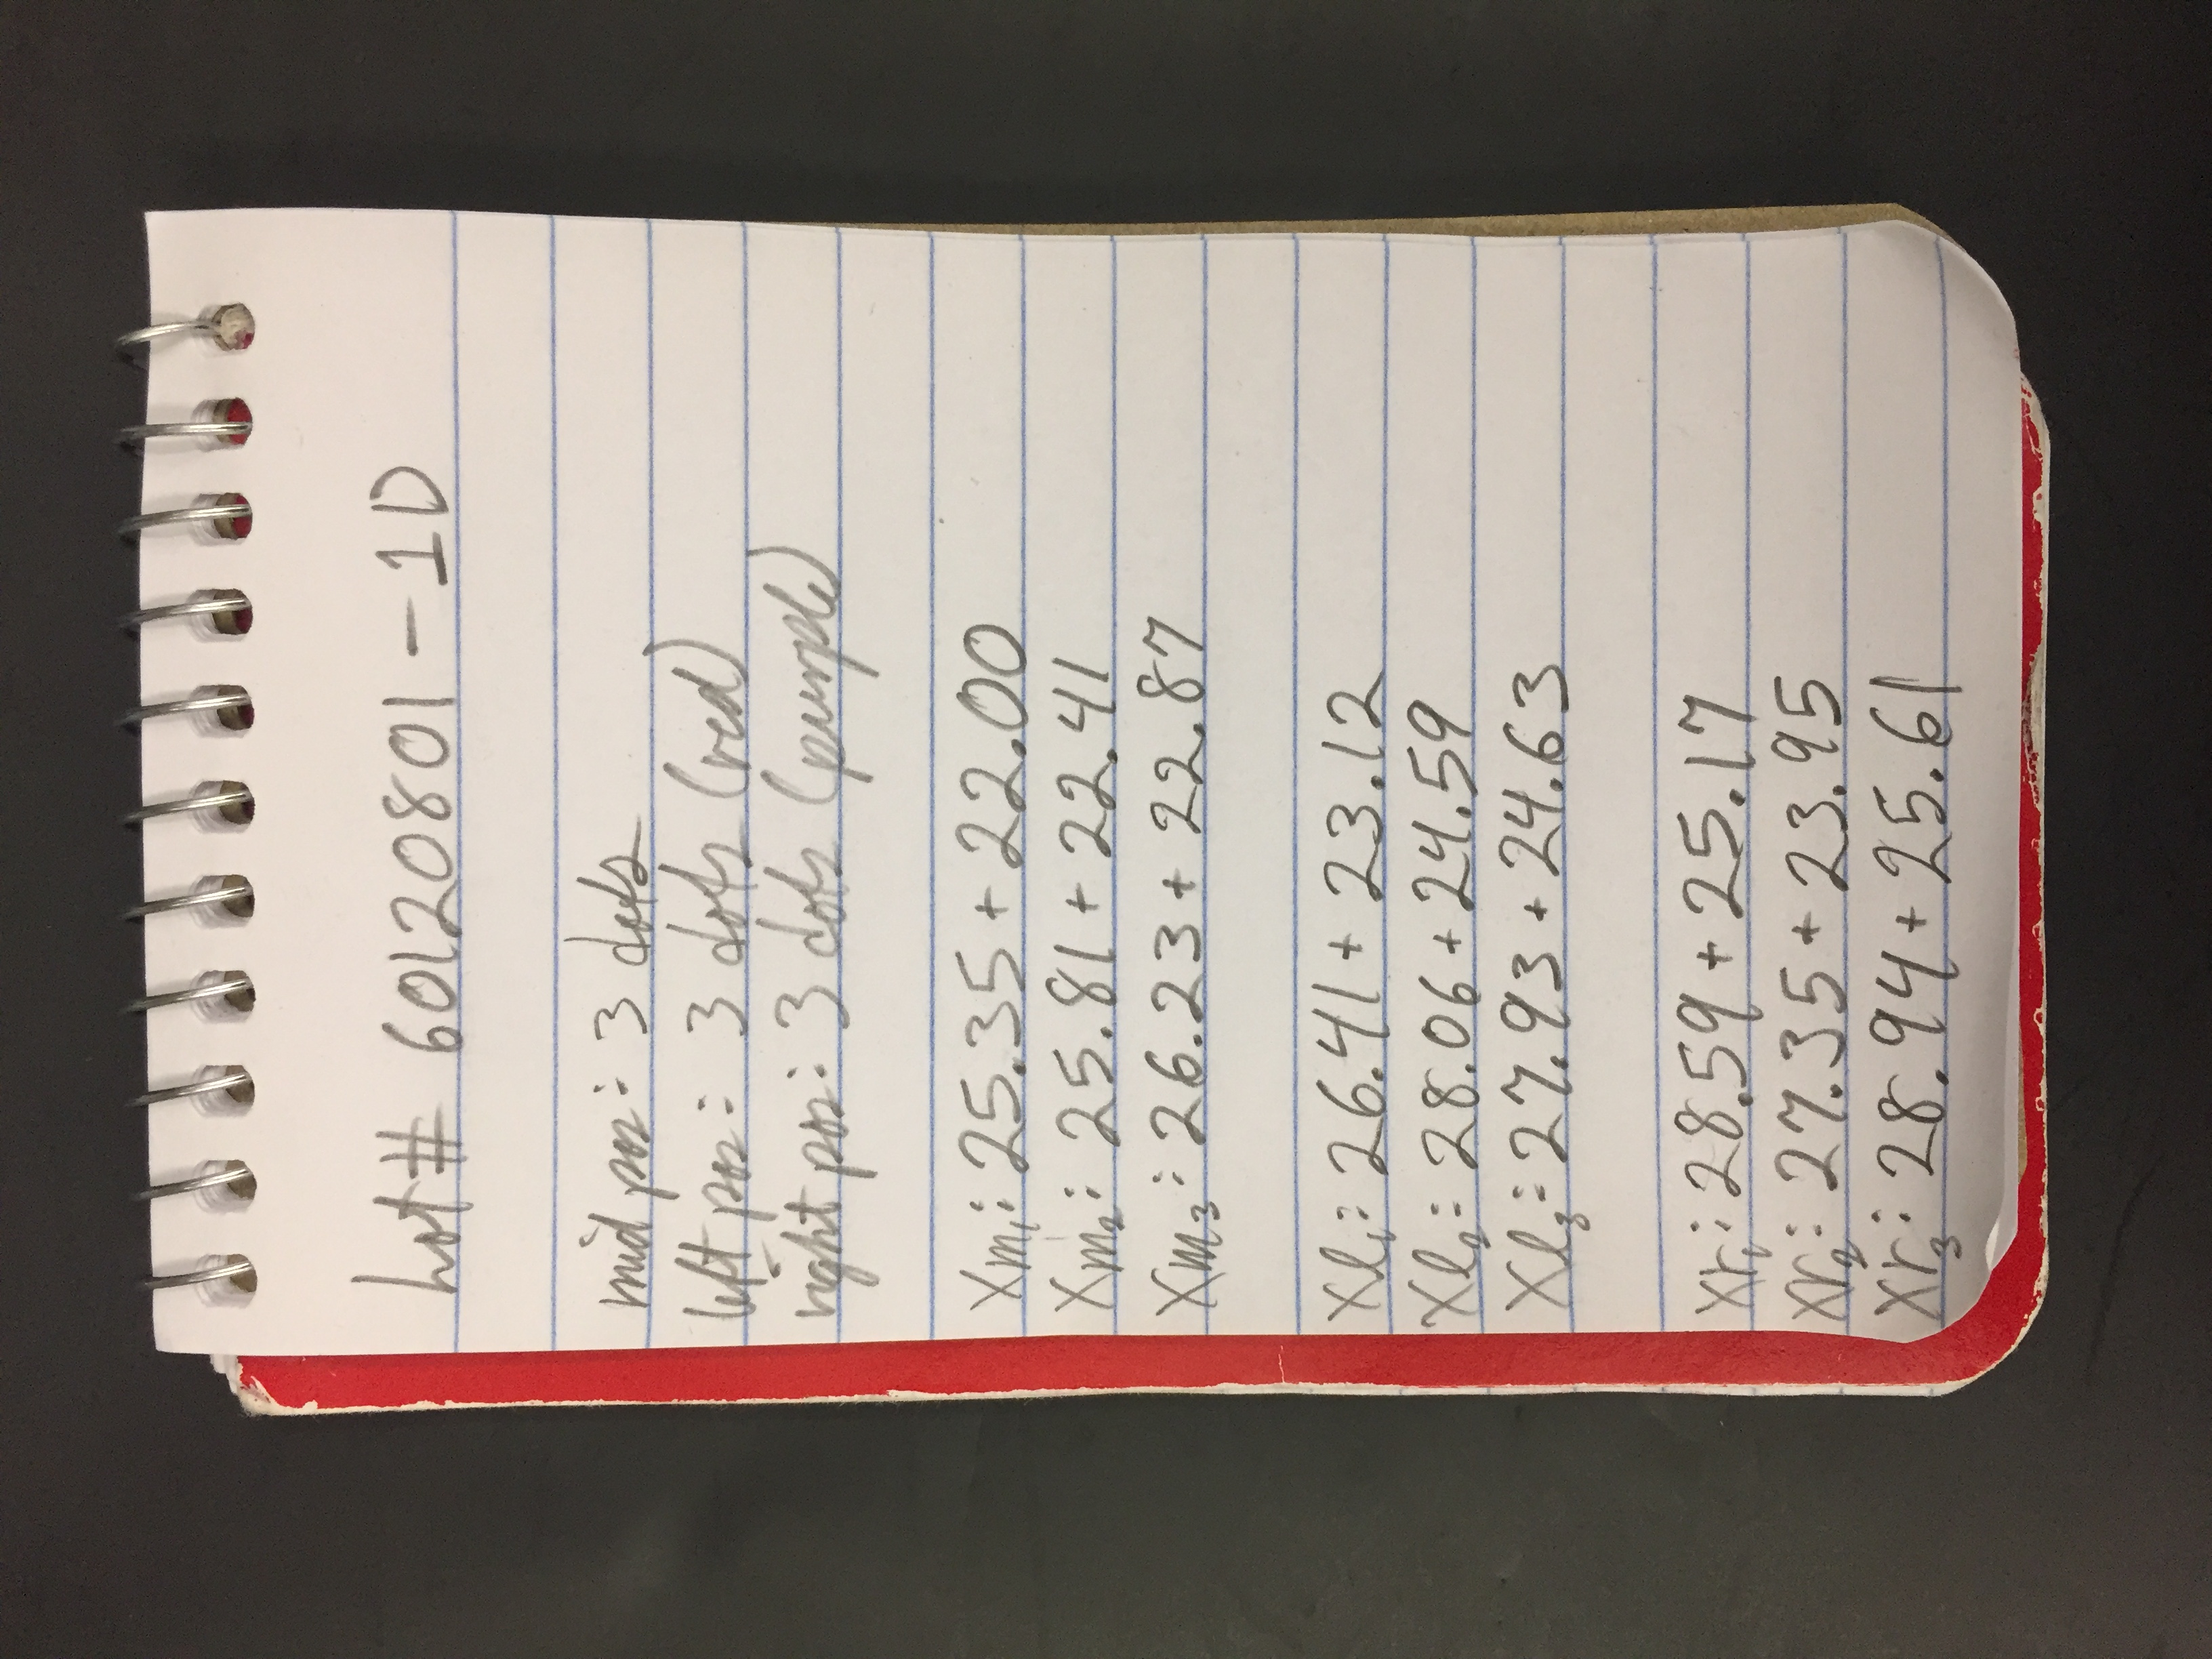 Lot# 60120801-1D
mid pos: 3 dots
left pos: 3 dots (red)
right pos: 3 dots (purple)
Xm₁: 25.35 + 22.00
Xm₂: 25.81 + 22.41
Xm₃: 26.23 + 22.87
Xl₁: 26.41 + 23.12
Xl₂: 28.06 + 24.59
Xl₃: 27.93 + 24.63
Xr₁: 28.59 + 25.17
Xr₂: 27.35 + 23.95
Xr₃: 28.94 + 25.61